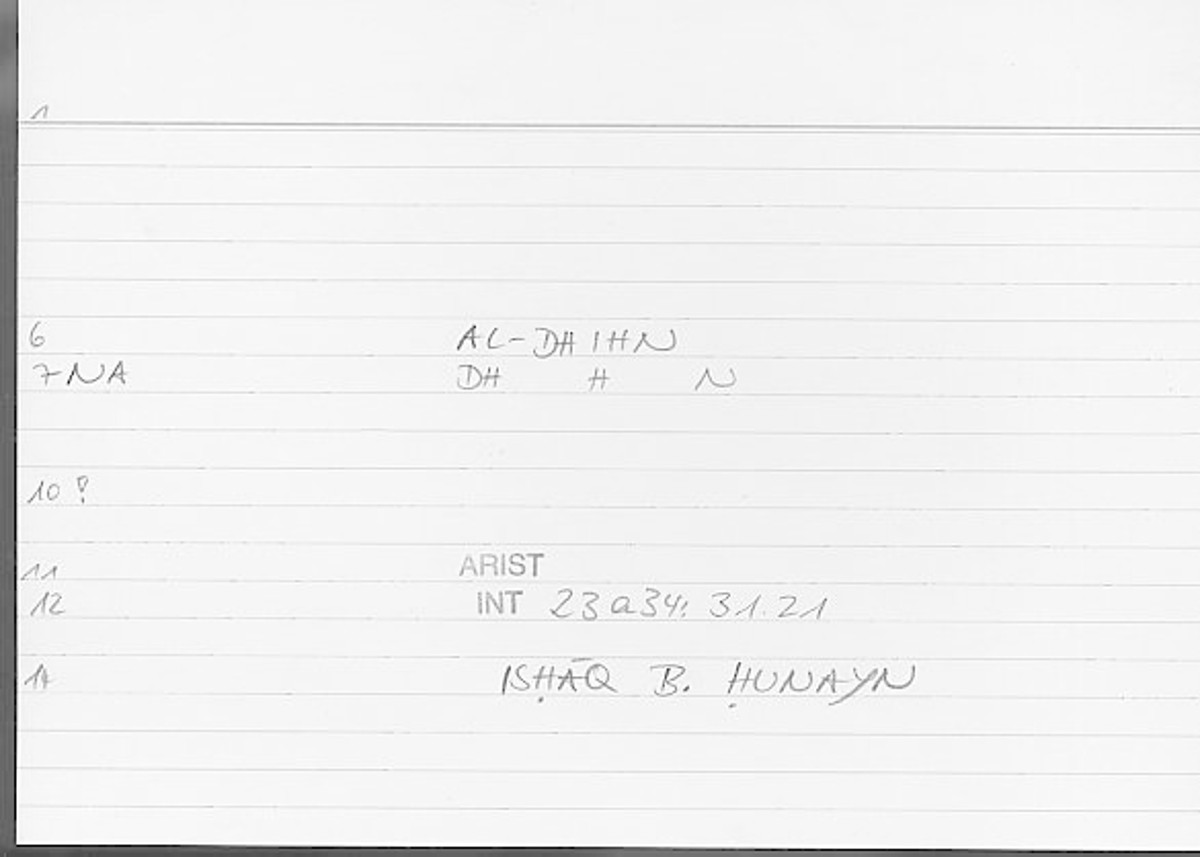 1
6 AL-DHIHN
7 NA DH H N
10 !
11 ARIST
12 INT 23a34: 31.21
14 ISḤĀQ B. ḤUNAYN